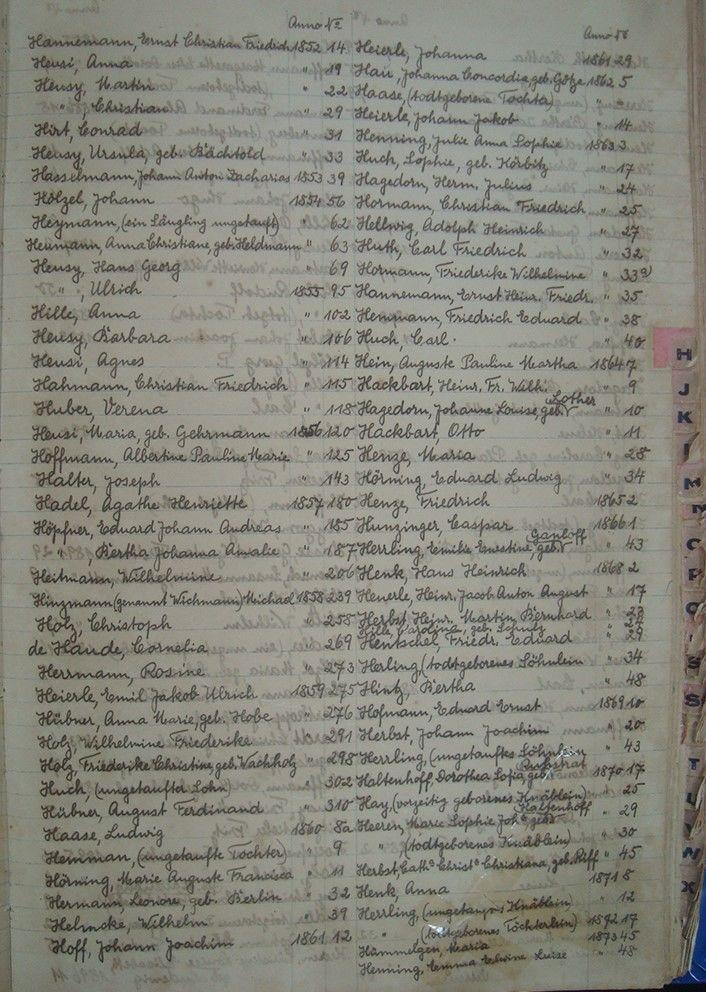 Anno No
Hannemann, Ernst Christian Friedrich 1852 14
Heusi, Anna " 19
Heusy, Martin " 22
" Christian " 29
Hirt, Conrad " 31
Heusy, Ursula, geb. Bächtold " 33
Hasselmann, Johann Anton Zacharias 1853 39
Hölzel, Johann 1854 56
Heymann, (ein Säugling ungetauft) " 62
Heumann, Anna Christiane, geb. Heldmann " 63
Heusy, Hans Georg " 69
" , Ulrich 1855 95
Hille, Anna " 102
Heusy, Barbara " 106
Heusi, Agnes " 114
Hahmann, Christian Friedrich " 115
Huber, Verena " 118
Heusi, Maria, geb. Gehrmann 1856 120
Hoffmann, Albertine Pauline Marie " 125
Halter, Joseph " 143
Hadel, Agathe Henriette 1857 180
Höpfner, Eduard Johann Andreas " 185
" , Bertha Johanna Amalie " 187
Heitmann, Wilhelmine " 206
Hinzmann (genannt Wichmann) Michael 1858 239
Holz, Christoph " 258
de Haude, Cornelia " 269
Herrmann, Rosine " 273
Heierle, Emil Jakob Ulrich 1859 275
Hübner, Anna Marie, geb. Hobe " 276
Holz, Wilhelmine Friederike " 291
Holz, Friederike Christine, geb. Wachholz " 298
Huch, (ungetaufter Sohn) " 302
Hübner, August Ferdinand " 310
Haase, Ludwig 1860 8a
Heinman, (ungetaufte Tochter) " 9
Hörning, Marie Auguste Francisca " 11
Hermann, Leonore, geb. Berlin " 32
Helmcke, Wilhelm " 39
Hoff, Johann Joachim 1861 12
Anno No
Heierle, Johanna 1861 29
Hau, Johanna Concordia, geb. Götze 1862 5
Haase, (todtgeborene Tochter) "
Heierle, Johann Jakob " 14
Henning, Julie Anna Sophie 1863 3
Huch, Sophie, geb. Körbitz " 17
Hagedorn, Herm. Julius " 24
Hormann, Christian Friedrich " 25
Hellwig, Adolph Heinrich " 27
Huth, Carl Friedrich " 32
Hormann, Friederike Wilhelmine " 33a)
Hannemann, Ernst Heinr. Friedr. " 35
Hemmann, Friedrich Eduard " 38
Huck, Carl. " 40
Hein, Auguste Pauline Martha 1864 7
Hackbart, Heinr. Fr. Wilh. " 9
Hagedorn, Johanne Louise, geb. Lother " 10
Hackbart, Otto " 11
Henze, Maria " 28
Hörning, Eduard Ludwig " 34
Henze, Friedrich 1865 2
Hunzinger, Caspar 1866 1
Herrling, Emilie Ernestine, geb. Ganhoff " 43
Henk, Hans Heinrich 1868 2
Heuerle, Heinr. Jacob Anton August " 17
Herbst, Heinr. Martin Bernhard " 23
Hille, Carolina, geb. Schulz
Hentschel, Friedr. Eduard " 29
Herling (todtgeborenes Söhnlein " 34
Hintz, Bertha " 48
Hofmann, Eduard Ernst 1869 10
Herbst, Johann Joachim " 20
Herrling, (ungetauftes Söhnlein " 43
Haltenhoff, Dorothea Sofia, geb. 1870 17
Hay, (vorzeitig geborenes Knäblein) " 25
Heeren, Marie Sophie Joh.a geb. Haltenhoff " 29
" (todtgeborenes Knäblein) " 30
Herbst, Cath.a Christ.a Christiana, geb. Riff " 45
Henk, Anna 1871 8
Herrling, (ungetauftes Knäblein) " 12
" (todtgeborenes Töchterlein) 1872 17
Hümmelgen, Maria 1873 45
Henning, Emma Edwine Luise " 48
H
J
K
L
M
N
O
P
S
T
U
W
X